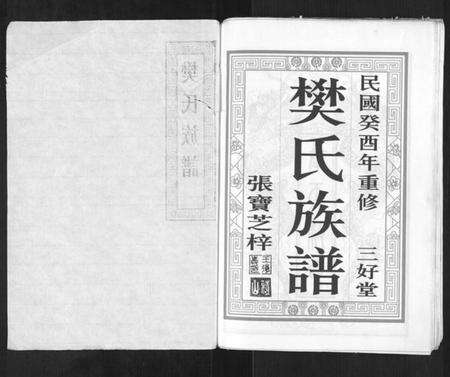 民國癸酉年重修　三好堂
樊氏族譜
張寶芝梓
樊氏族譜